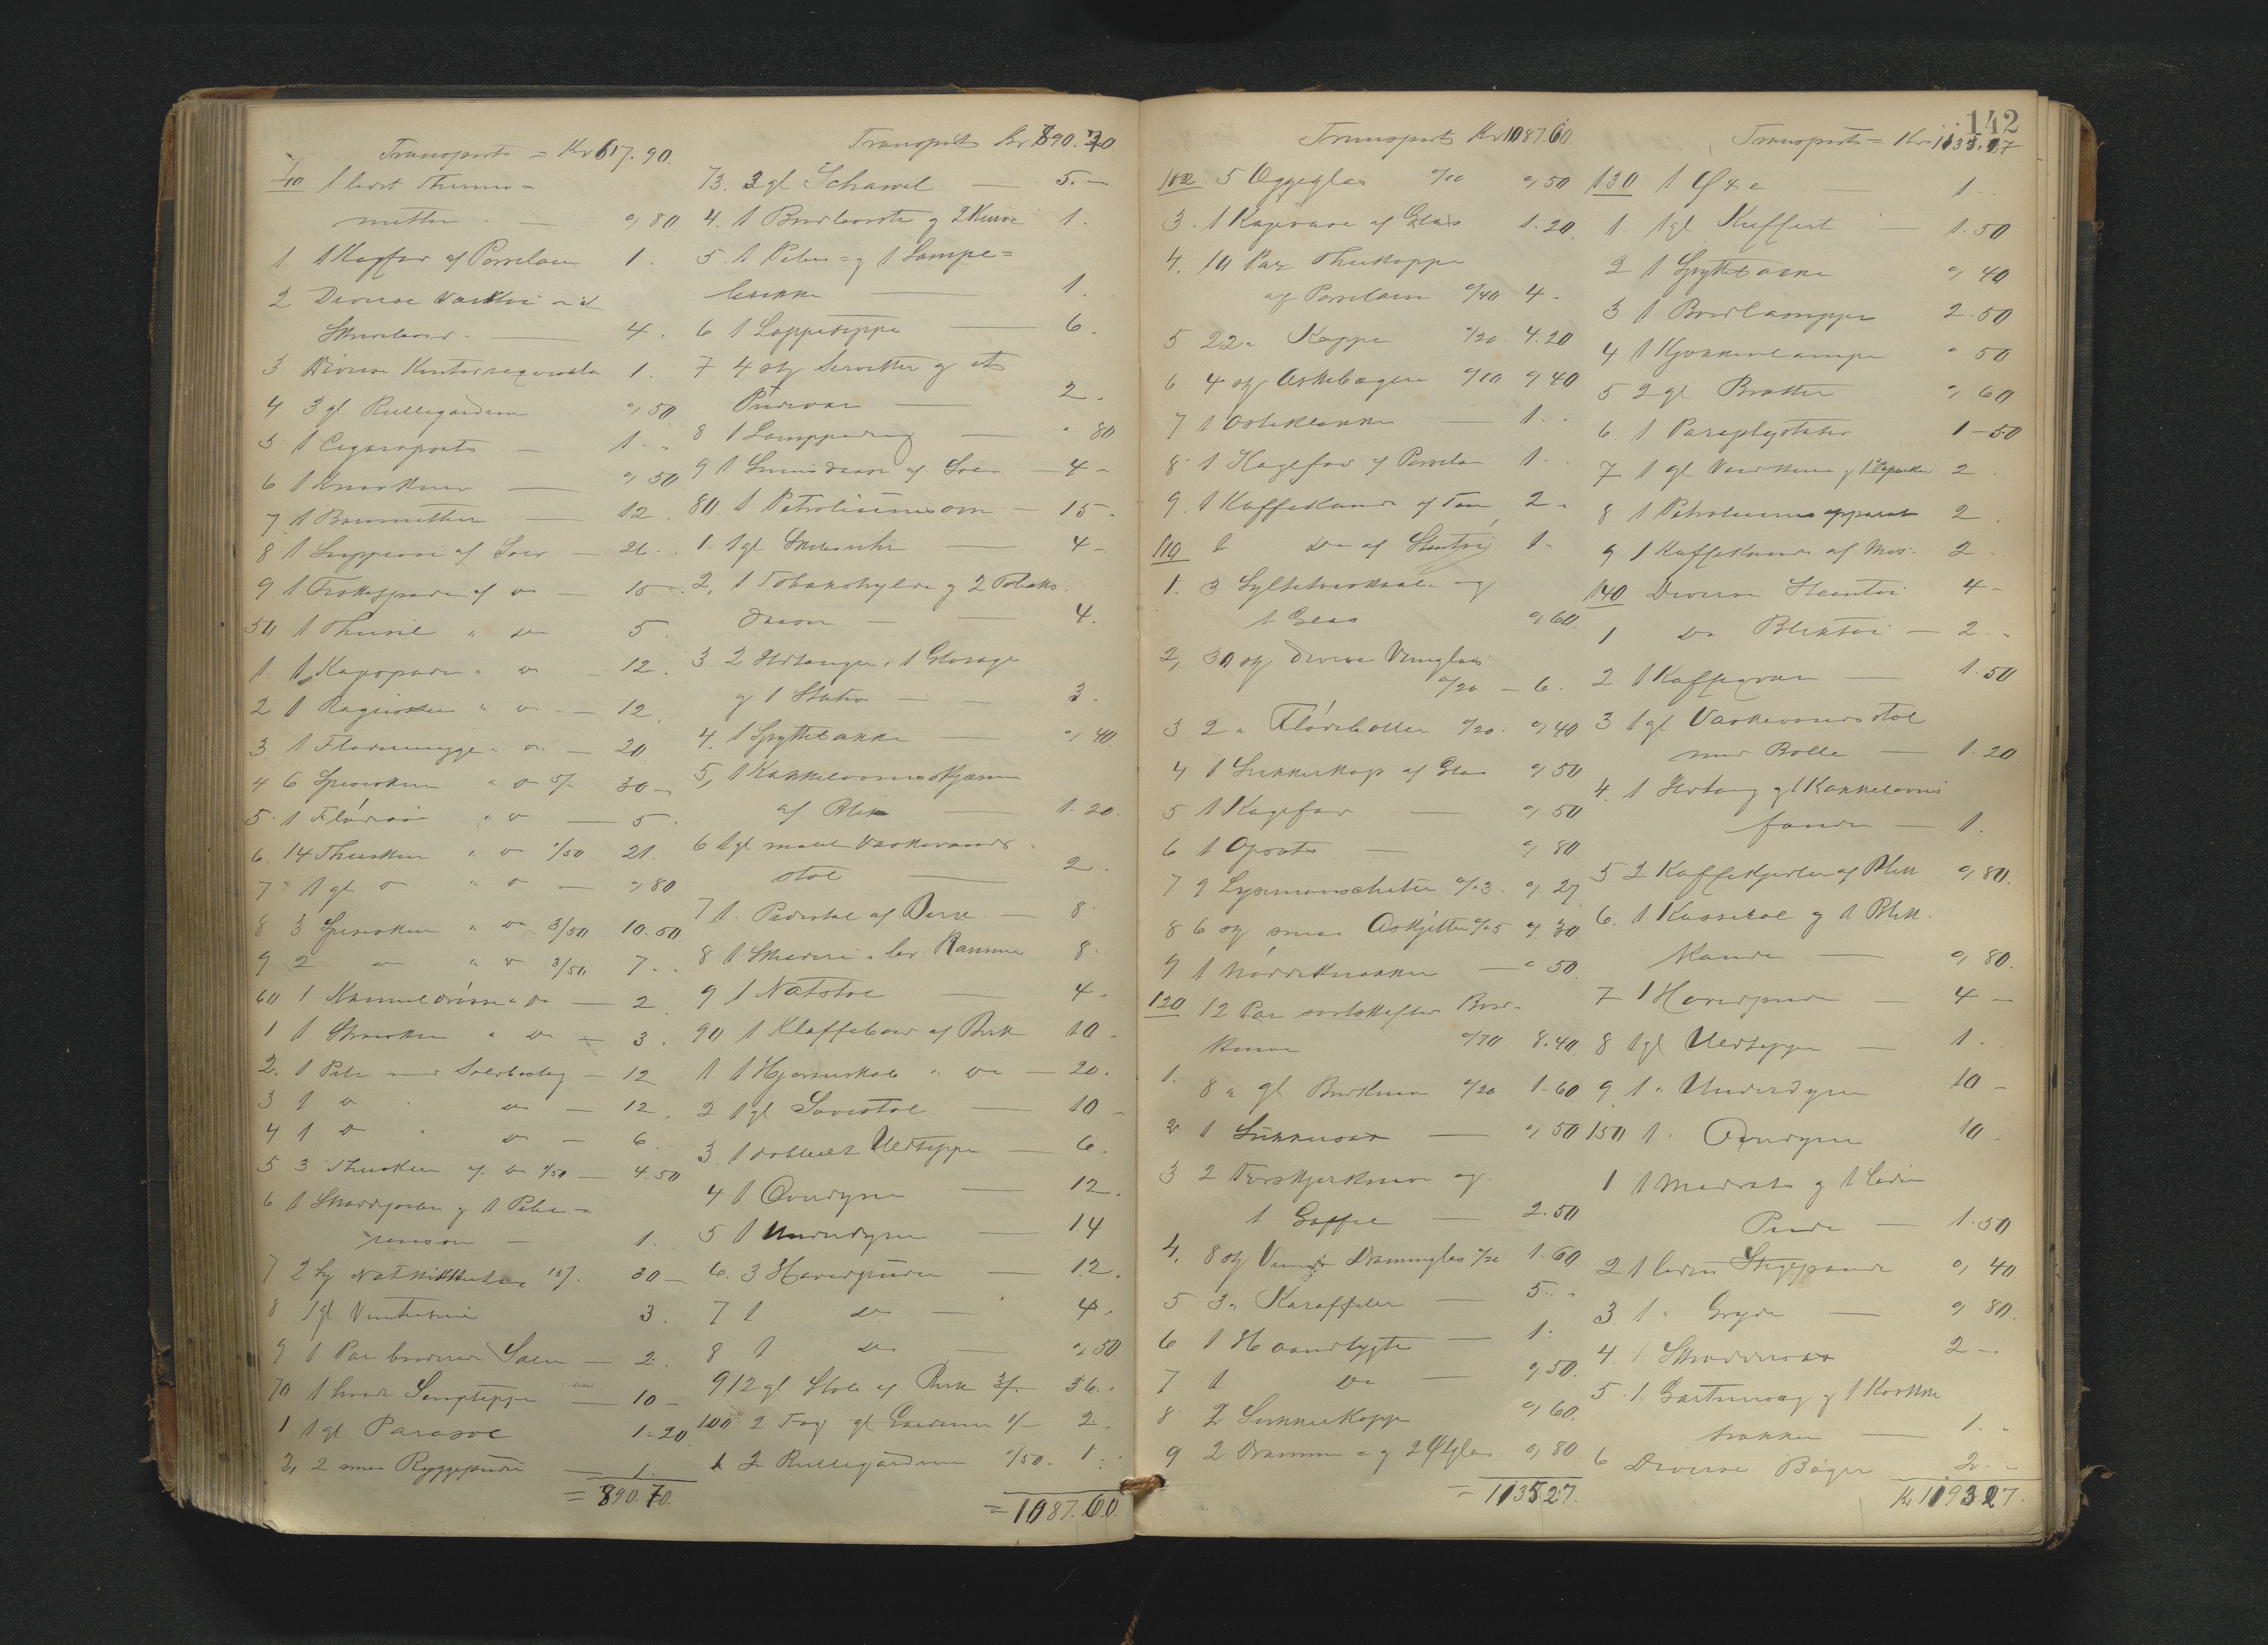 Transport = Kr 617.90.
40 1 lidet Thermo=
metter — 0,80
1. 1 Kagfad af Porcelæn 1.
2 Diverse
4.
3 Diverse Kontorrequisita 1.
4 3 gl Rullegardiner 0,50
5 1 Cigaropsats — 1.
6 1 — 0,50
7 1 Barometer — 12.
8 1 Suppeøse af Sølv — 26.
9 1 Fiskespade af do — 15.
50 1 Thesil " do 5
1. 1 Kagespade " do — 12.
2 1 " do — 12.
3 1 Flødemugge " do — 20
4 6 Spiseskeer " do 5/- 30 —
5. 1 Flødeske " do — 5.
6. 14 Theskeer " do 1/50 21.
7 1 gl do " do — 0,80
8 3 Spiseskeer " do 3/50 10.50
9 2 do " do 3/50 7.
60 1 Kanneldaase " do — 2
1 1 " do — 3.
2. 1 Pibe med Sølvbeslag — 12
3 1 do " do — 12.
4 1 do " do — 6.
5 3 Theskeer af do 1/50 — 4.50
6 1 og 1 Pibe=
renser — 1.
7 2 15/. 30 —
8 1 gl 3.
9 1 Par broderede — 2.
70 1 hvidt Sengeteppe — 10 —
1. 1 gl Parasol 1.20
2, 2 smaa Rygge puder — 1.
= 890.70.
Transport Kr 890.70.
73. 3 gl Schawel — 5.—
4. 1 Bordbørste og 2 Kurve 1.
5. 1 Pibe= og 1 Lampe=
brikke — 1.
6 1 Loppeteppe — 6.
7 4 stk Servietter og et
Pudevar — 2.
8 1 — " 80
9 1 af Sølv — 4 —
80. 1 Petroliumsovn — 15.
1. 1 gl — 4 —
2, 1 Tobakshylde og 2 Tobaks.
daaser — 4.
3. 2 Ildtænger, 1
og 1 Stativ — 3.
4. 1 Spyttebakke — 0,40
5, 1 Kakkelovnsskjærm
af Blik — 1.20.
6 1 gl malet Vaskevands=
stol — 2.
7 1. Pidestal af Birk — 8.
8 1 Skilderi Ramme 8.
9 1 Natstol — 4.
90 1 Klaffebord af Birk 10 —
1. 1 Hjørneskab " do — 20.
2 1 gl Lænestol — 10 —
3. 1 dobbelt Uldteppe — 6.
4 1 Overdyne — 12.
5 1 Underdyne — 14
6. 3 Hovedpuder — 12.
7 1 do — 4.
8 1 do — 0,50
9 12 gl Stole af Birk 3/- 36.
100 2 Fag gl Gardiner 1/- 2.
1 2 Rullegardiner 0/50. 1.
= 1087.60.
142
Transport Kr 1087.60.
102 5 Æggeglas 0/10 0,50
3. 1 Kagevase af Glas 1.20.
4. 10 Par Thekopper
af Porcelæn 0/40 4.
5 22 " Kopper 0/20. 4.20
6 4 stk Askebægere 0/10 0,40
7 1 Osteklokke — 1.
8. 1 Kagefad af Porcelæn 1.
9. 1 Kaffekande af Tin 2.
110 1 do af Stentøi 1.
1. 3 Syltetøiskaale og
1 Glas 0,60.
2, 30 stk diverse Vinglas
0/20 — 6.
3 2 " Flødeboller 0/20. 0,40
4 1 Sukkerkop af Glas 0,50
5 1 Kagefad — 0,50
6 1 Opsats — 0,80
7 9 Lysemanschetter 0/03. 0,27
8 6 stk smaa Asjetter 0/05 0,30
9 1 Nøddeknækker — " 50.
120 12 Par sortskaftet Bord-
knive 0/70 8.40
1. 8 " gl Bordknive 0/20 1.60
2 1 — 0,50
3 2 Forskjærknive og
1 Gaffel — 2.50
4. 8 stk Dramglas 0/20 1.60
5 3 " Karaffeler — 5.
6 1 Haandlygte — 1.
7 1 do — 0,50.
8 2 Sukkerkopper 0,60.
9 2 Dramme= og 2 Ølglas 0,80
= 1135.27.
Transport = Kr 1135.27
130 1 Øxe — 1.
1. 1 gl Kuffert — 1.50
2 1 Spyttebakke 0,40
3 1 Bordlampe 2.50
4 1 Kjøkkenlampe " 50
5 2 gl Brætter 0,60
6. 1 Paraplystativ 1-50
7 1 gl 2.
8 1 Petroleumsapparat 2.
9 1 Kaffekande af Mes. 2.
140 Diverse Stentøi 4 —
1 do Bliktøi — 2.
2 1 Kaffeqvern — 1.50
3 1 gl Vaskevandsstol
med Bolle — 1.20
4. 1 Ildtang og 1 Kakkelovns
— 1.
5 2 Kaffekjedler af Blik 0,80.
6. 1 Kasserol og 1 Blik.
kande — 0,80.
7 1 Hovedpude — 4 —
8 1 gl Uldteppe — 1.
9 1 " Underdyne 10 —
150 1 " Overdyne 10.
1 1 Madrats og 1 liden
Pude — 1.50
2 1 liden Stegepande 0,40
3. 1 " Gryde — 0,80.
4. 1 2 —
5. 1 og 1
— 1.
6 Diverse Bøger 2.
Kr 1193.27.